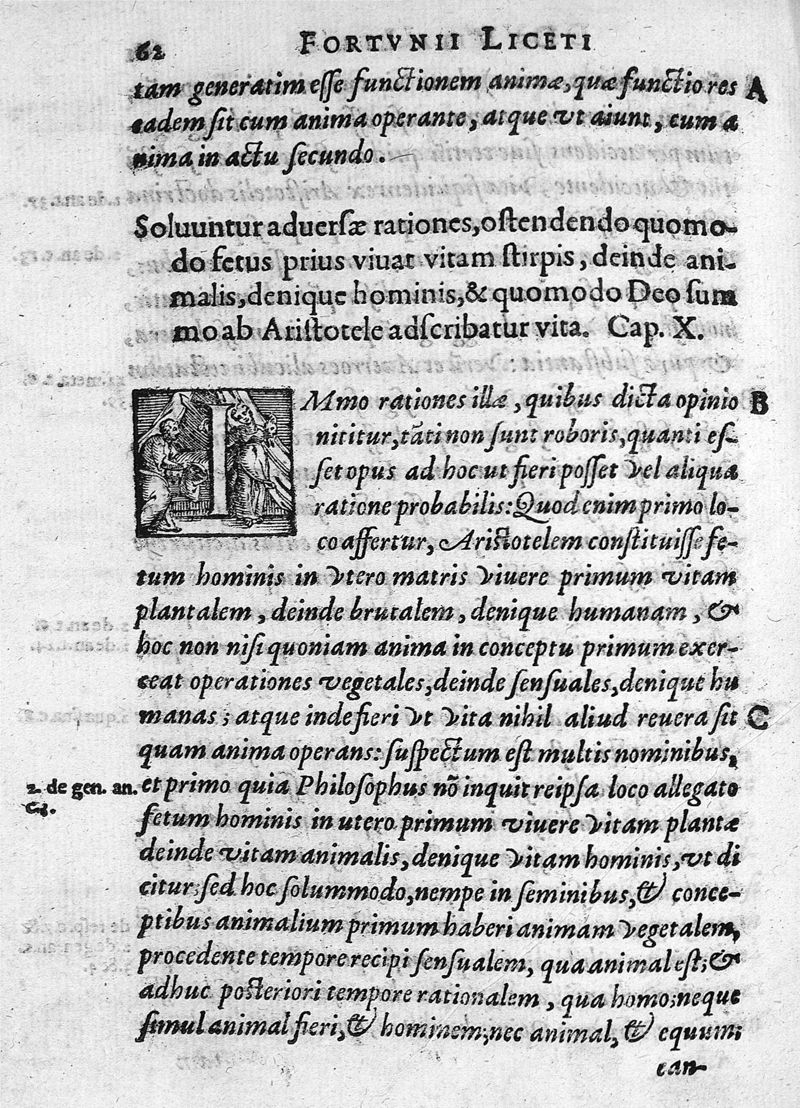 62 FORTVNII LICETI
tam generatim esse functionem animæ, quæ functio res A
eadem sit cum anima operante, atque vt aiunt, cum a
nima in actu secundo.
Soluuntur aduersæ rationes, ostendendo quomo-
do fetus prius viuat vitam stirpis, deinde ani-
malis, denique hominis, & quomodo Deo sum
mo ab Aristotele adscribatur vita. Cap. X.
IMmo rationes illæ, quibus dicta opinio B
nititur, tāti non sunt roboris, quanti es-
set opus ad hoc ut fieri posset vel aliqua
ratione probabilis: Quod enim primo lo-
co affertur, Aristotelem constituisse fe-
tum hominis in vtero matris viuere primum vitam
plantalem, deinde brutalem, denique humanam, &
hoc non nisi quoniam anima in conceptu primum exer-
ceat operationes vegetales, deinde sensuales, denique hu
manas; atque inde fieri vt vita nihil aliud reuera sit C
quam anima operans: suspectum est multis nominibus,
2. de gen. an. et primo quia Philosophus nō inquit reipsa loco allegato
c. 3. fetum hominis in utero primum viuere vitam plantæ
deinde vitam animalis, denique vitam hominis, vt di
citur: sed hoc solummodo, nempe in seminibus, & conce-
ptibus animalium primum haberi animam vegetalem,
procedente tempore recipi sensualem, qua animal est; &
adhuc posteriori tempore rationalem, qua homo; neque
simul animal fieri, & hominem; nec animal, & equum;
ean-